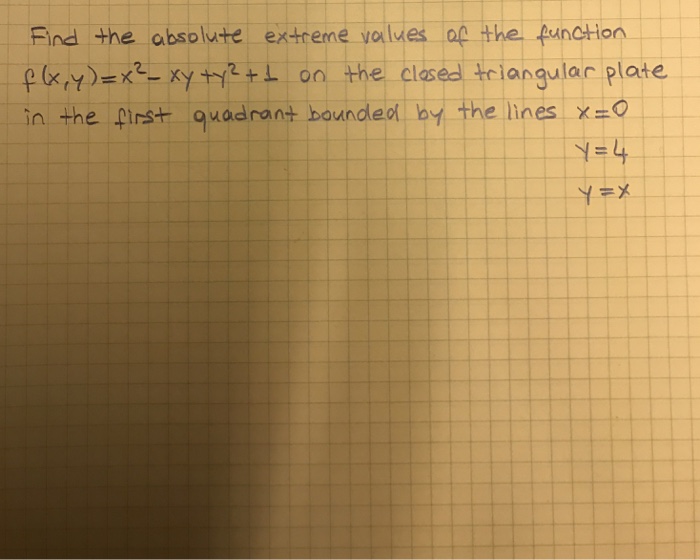 Find the absolute extreme values of the function
f(x,y)=x²- xy +y²+1 on the closed triangular plate
in the first quadrant bounded by the lines x=0
y=4
y=x